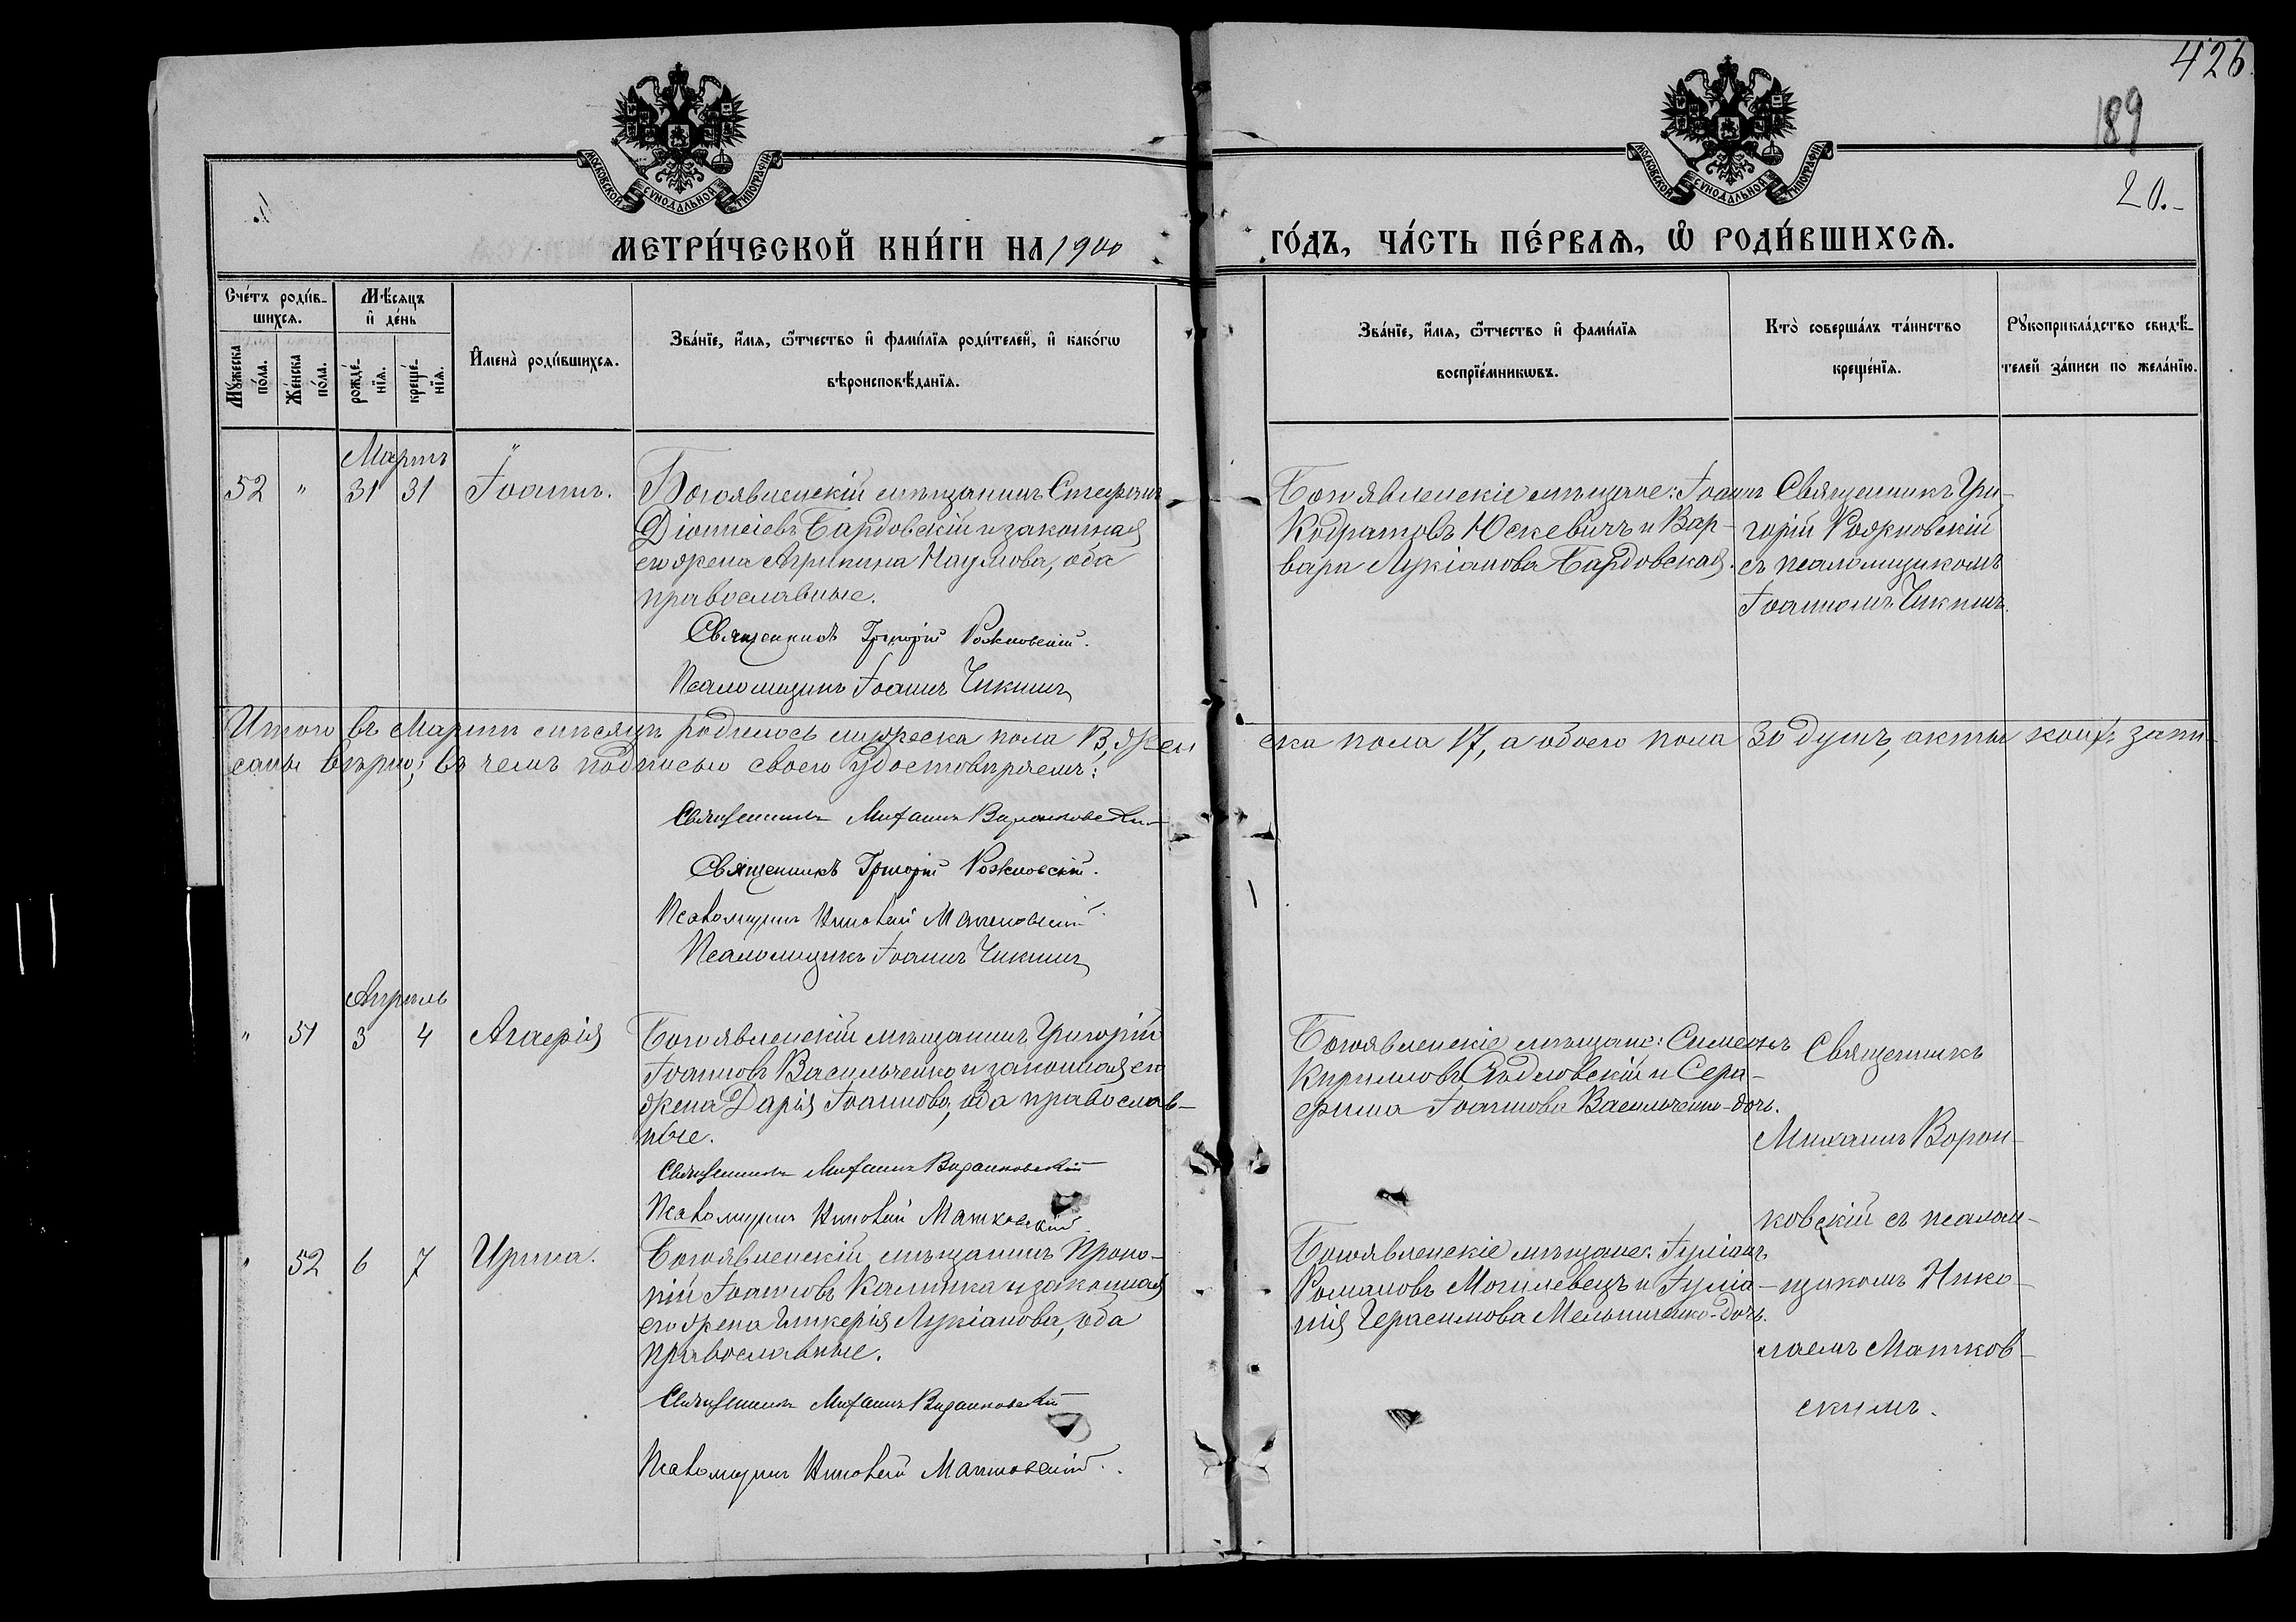 426
189
20.
МОСКОВСКОЙ СѴНОДАЛЬНОЙ ТИПОГРАФІИ
МОСКОВСКОЙ СѴНОДАЛЬНОЙ ТИПОГРАФІИ
МЕТРИ́ЧЕСКОЙ КНИ́ГИ НА 1900 ГО́ДЪ, ЧА́СТЬ ПЕ́РВАѦ, Ѡ҆ РОДИ́ВШИХСѦ.
Сче́тъ роди́в-
шихсѧ.
Мꙋ́жеска по́ла.
Же́нска по́ла.
Мѣ́сѧцъ и҆ де́нь
рожде́-нїѧ.
креще́-нїѧ.
И҆мена̀ роди́вшихсѧ.
Зва́нїе, и҆́мѧ, ѻ҆́тчество и҆ фами́лїѧ роди́телей, и҆ како́гѡ
вѣроисповѣ́данїѧ.
Зва́нїе, и҆́мѧ, ѻ҆́тчество и҆ фами́лїѧ
воспрїе́мникѡвъ.
Кто̀ соверша́лъ та́инство
креще́нїѧ.
Рꙋкоприкла́дство свидѣ́-
телей за́писи по жела́нїю.
Мартъ
52 " 31 31 Іоаннъ.
Богоявленскій мѣщанинъ Стефанъ
Діонисіевъ Бардовскій и законная
его жена Агрипина Наумова, оба
православные.
Священникъ Григорій Рожновскій.
Псаломщикъ Іоаннъ Чикинъ
Богоявленскіе мѣщане: Іоаннъ
Кодратовъ Юскевичъ и Вар-
вара Лукіанова Бардовская.
Священникъ Гри-
горій Рожновскій
съ псаломщикомъ
Іоанномъ Чикинъ.
Итого въ Мартѣ мѣсяцѣ родилось мужеска пола 13, жен
ска пола 17, а обоего пола 30 душъ, акты коихъ запи-
саны вѣрно; въ чемъ подписью своею удостовѣряемъ:
Священникъ Михаилъ Воронковскій
Священникъ Григорій Рожновскій.
Псаломщикъ Николай Матковскій
Псаломщикъ Іоаннъ Чикинъ
Апрѣль
" 51 3 4 Агафія
Богоявленскій мѣщанинъ Григорій
Іоанновъ Васильченко и законная его
жена Дарія Іоаннова, оба православ-
ные.
Священникъ Михаилъ Воронковскій
Псаломщикъ Николай Матковскій
Богоявленскіе мѣщане: Симеонъ
Кирилловъ Сѣдловскій и Сера-
фима Іоаннова Васильченко-дочь.
Священникъ
Михаилъ Ворон-
ковскій съ псалом-
щикомъ Нико-
лаемъ Матков-
скимъ.
" 52 6 7 Ирина.
Богоявленскій мѣщанинъ Проко-
пій Іоанновъ Калинка и законная
его жена Гликерія Лукіанова, оба
православные.
Священникъ Михаилъ Воронковскій
Псаломщикъ Николай Матковскій.
Богоявленскіе мѣщане: Іуліанъ
Романовъ Могилевецъ и Іуліа-
нія Герасимова Мельниченко-дочь.